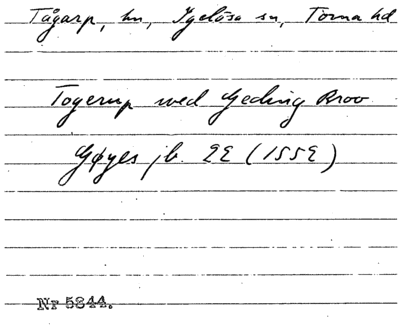 Tågarp, hn, Igelösa sn, Torna hd
Togerup wed Geding Broo
Gøyes jb. 22 (1552)
Nr 5844.